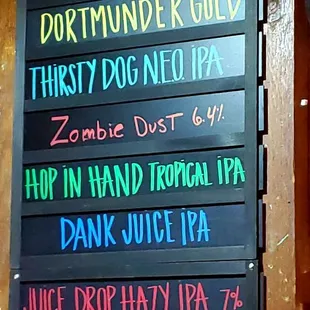 DORTMUNDER GOLD
THIRSTY DOG N.E.O. IPA
Zombie Dust 6.4%
HOP IN HAND TROPICAL IPA
DANK JUICE IPA
JUICE DROP HAZY IPA 7%